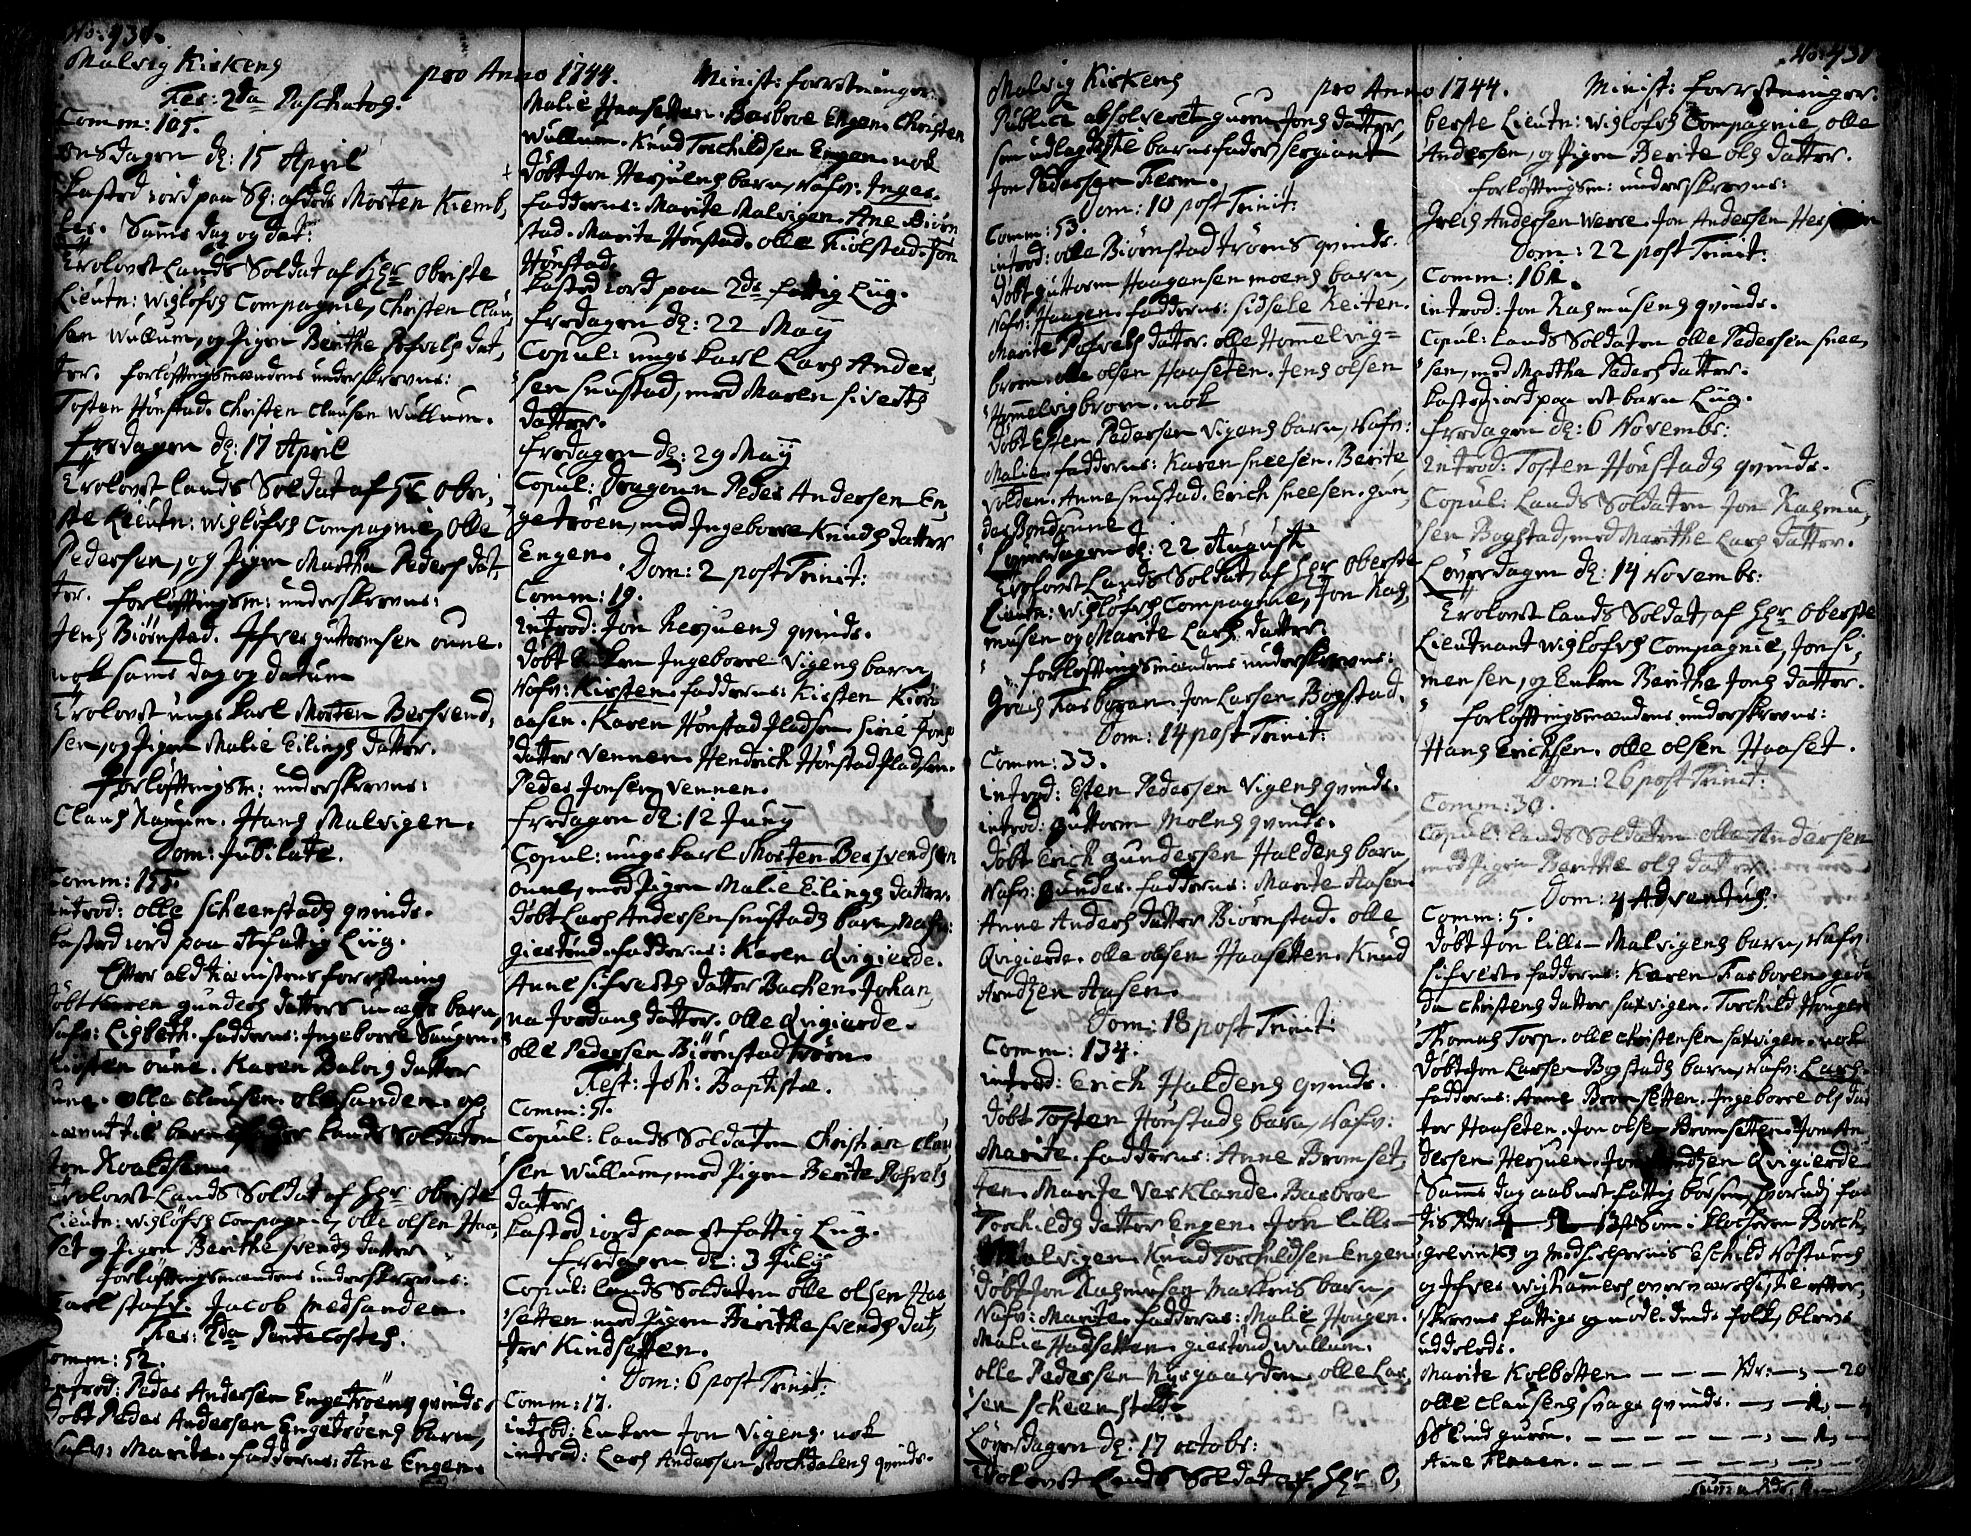 No: 430.
Malvig Kirkens
pro Anno 1744.
Minist: forretninger.
Fer: 2da Paschatos.
Comm: 105.
onsdagen d: 15 April
Kasted iord paa Sg: afdøde Morten Kiemb,
ler. Samme dag og dat:
Trolovet Lands Soldat af Hr Obriste
Lieutn: Wiglöfsh Compagnie, Christen Clau,
sen Wullum, og Pigen Berithe Pofvels dat,
ter. forløftningsmændens underskrevne:
Tosten Hønstad. Christen Clausen Wullum.
fredagen d: 17 April
Trolovet Lands Soldat af Hr Obri,
ste Lieutn: Wiglöfsh Compagnie, Olle
Pedersen, og Pigen Martha Peders dat,
ter. forløftningsm: underskrevne:
Jens Biørnstad. Ifver guttormsen oune.
nok samme dag og datum
Trolovet unge karl Morten Bersvend,
sen, og Pigen Malie Eilings datter.
forløftningsm: underskrevne:
Claus Haugum. Hans Malvigen.
Dom: Jubilate.
Comm: 155.
introd: olle scheenstads qvinde.
Kasted iord paa et fattig Liig.
Efter ald tienistens forretning
døbt Karen gunders datters uægte barn,
Nafv: Lisbeth. fadderne: Ingeborre Saugen.
Kirsten oune. Karen Balvig datter
oune. olle Clausen. ole sanden. op,
nævnt til barnefader Lands Soldaten
Jon Roaldsen.
Trolovet Lands Soldat af Hr Oberste
Lieutn: Wiglöfsh Compagnie, olle olsen Haa,
set og Pigen Berithe svends datter
forløftningsmændens underskrevne:
Carl stafr. Jacob medsanden.
Fer: 2da Pentecostes.
Comm: 52.
Introd: Peder Andersen Engetrøens qvinde.
døbt Peder Andersen Engetrøens barn,
Nafv: Marite. fadderne: Ane Engen.
Malie Haasetten. Barbroe Engen. Christen
Wullum. Knud Torchildsen Engen. nok
døbt Jon Herjuens barn, Nafv: Inger.
fadderne: Marite Malvigen. Ane Biørn
stad. Marita Hønstad. olle Kiølstad. Jon
Hønstad.
Kasted iord paa 2de fattig Liig.
fredagen d: 22 May
Copul: unge karl Lars Ander,
sen snustad, med Maren siverts
datter.
fredagen d: 29 Maÿ
Copul: Dragoun Peder Andersen En,
getrøen, med Ingeborre Knuds datter
Engen.
Dom: 2 post Trinit:
Comm: 19.
Introd: Jon Herjuens qvinde.
døbt Enken Ingeborre Vigens barn,
Nafv: Kirsten. fadderne: Kirsten Kirk
aasen. Karen Hønstad pladsen. siri Jons
datter Vennen. Hendrich Hønstad pladsen.
Peder Jonsen Vennen.
fredagen d: 12 Juny
Copul: unge karl Morten Bersvendsen
oune, med Pigen Malie Eilings datter.
døbt Lars Andersen snustads barn, Nafv:
giertrud. fadderne: Karen Qvigierde.
Anne sifverts datter Bachen. Johan,
na Jordans datter. olle Qvigierde.
olle Pedersen Biørnstadtrøen.
Fest: Joh: Baptistæ.
Comm: 5.
Copul: Lands Soldaten Christian Clau
sen Wullum, med Pigen Berite Pofvels
datter.
Kasted iord paa et fattig Liig.
fredagen d: 3 Julÿ
Copul: Lands Soldaten olle olsen Haa
setten med Pigen Berithe svends dat,
ter Kindsetten.
Dom: 6 post Trinit:
Comm: 17.
introd: Enken Jon Vigens. nok
introd: Lars Andersen Stochdalens qvinde.
No: 431
Malvig Kirkens
pro Anno 1744.
Minist: forretninger.
Publice absolveret guren Jons datter,
som udlagde til barnefader sergiant
Jon Pedersen Ferm.
Dom: 10 post Trinit:
Comm: 53.
introd: olle Biørnstadtrøens qvinde.
døbt guttorm Haagensen moens barn,
Nafv: Haagen. fadderne: sidsele Reiten.
Marite Pofvels datter. olle Hommelvig=
broen. olle olsen Haasetten. Jens olsen
Hommelvigbroen. nok
døbt Esten Pedersen Vigens barn, Nafv:
Malie. fadderne: Karen sneesen. Berite
Volden. Anne snustad. Erich sneesen. gun,
der Bondoune.
Løverdagen d: 22 August
Trolovet Lands Soldat, af Hr Oberste
Lieutn: Wiglöfsh Compagnie, Jon Ras,
musen og Marite Lars datter.
forløftningsmændens underskrevne:
Grels Fårboren. Jon Larsen Bogstad.
Dom: 14 post Trinit:
Comm: 33.
introd: Esten Pedersen Vigens qvinde.
introd: guttorm Moens qvinde.
døbt Erich gundersen Haldens barn,
Nafv: gunder. fadderne: Marite Aasen.
Anne Anders datter Biørnstad. olle
Qvigierde. olle olsen Haasetten. Knud
Arndtzen Aasen.
Dom: 18 post Trinit:
Comm: 134.
introd: Erich Haldens qvinde.
døbt Tosten Hønstads barn, Nafv:
Marite. fadderne: Anne Bromset,
ten. Marite Verklande. Barbroe
Torchilds datter Engen. Joh lille-
Malvigen. Knud Torchildsen Engen.
døbt Jon Rasmusen Martens barn,
Nafv: Marite. fadderne: Malie Hougen.
Malie Haasetten. giertrud Wullum.
olle Pedersen Nygaarden. olle Lar,
sen scheenstad.
Løverdagen d: 17 octobr:
Trolovet Lands Soldat af Hr O,
berste Lieutn: Wiglöfsh Compagnie, olle
Andersen, og Pigen Berite ols datter.
forløftningsm: underskrevne:
Grels Andersen Werre. Jon Andersen Herjuen
Dom: 22 post Trinit:
Comm: 161.
introd: Jon Rasmusens qvinde.
Copul: Lands Soldaten olle Pedersen snee,
sen, med Martha Peders datter.
Kasted iord paa et barn Liig.
fredagen d: 6 Novembr:
Introd: Tosten Hønstads qvinde.
Copul: Lands Soldaten Jon Rasmu,
sen Bogstad, med Marithe Lars datter.
Løverdagen d: 14 Novembr:
Trolovet Lands Soldat, af Hr Oberste
Lieutnant Wiglöfsh Compagnie, Jon si,
mensen, og Enken Berithe Jons datter.
forløftningsmændens underskrevne:
Hans Erichsen. olle olsen Haaset.
Dom: 26 post Trinit:
Comm: 30.
Copul: Lands Soldaten olle Andersen
med Pigen Berithe ols datter.
Dom: 4 Adventus.
Comm: 5.
døbt Jon lille-Malvigens barn, Nafv:
sifvert. fadderne: Karen Farboren.
da Christens datter saxvigen. Torchild Hougen
Thomas Torp. olle Christensen saxvigen. nok
døbt Jon Larsen Bogstads barn, Nafv: Lars.
fadderne: Anne Bromsetten. Ingeborre ols dat
ter Haasetten. Jon olsen Bromsetten. Jon An
dersen Herjuen. Jon Arndtzen Qvigierde
Samme dag aabnet fattig bøssen, hvorudj fan
tis Rdr: 13 s: Som i klocheren Borch,
grevinks og Medhielperne Eschild Rostuens
og Ifver Wighammers overværelse efter,
skrevne fattige og nødlidende folk, bleve
uddeelede.
Marite Kolbotten. — — — Rdr: —, —20
olle Clausens svage qvinde. —, —1, —4
Blind guren. — — — — — — —, —1, —
Anne Flaaen. — — — — — — —, —
Summa Rdr: